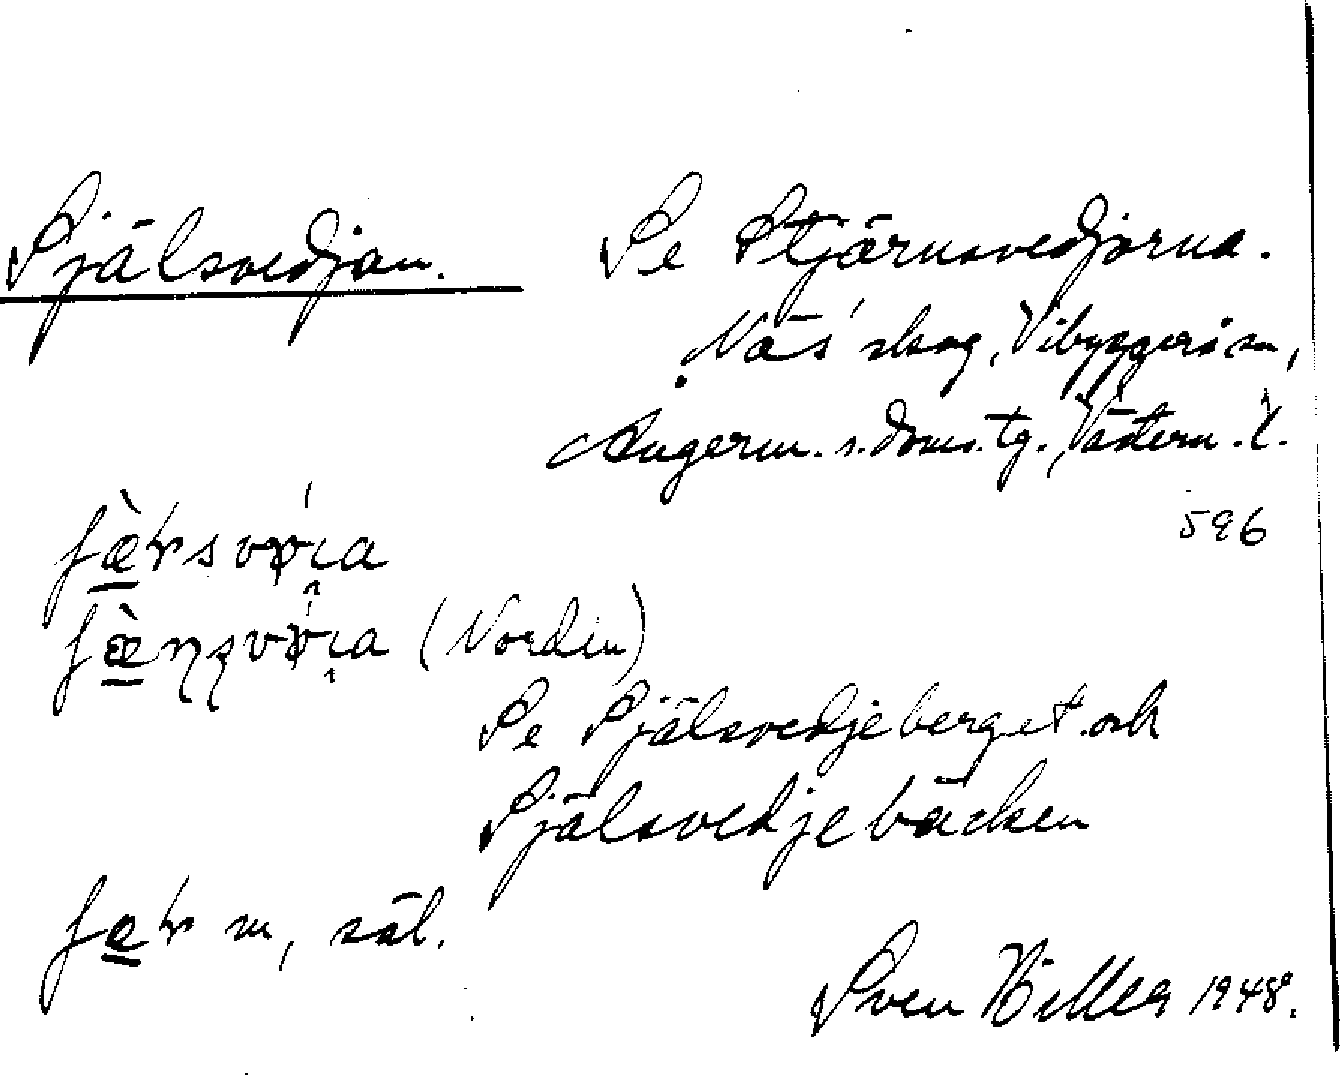 Själsvedjan. Se Stjärnsvedjorna.
Näs' skog, Vibyggerå sn,
Ångerm. s. doms. tg., Västern. l.
596
(Nordin)
Se Själsvedjeberget och
Själsvedjebäcken
m, säl.
Sven 1948.